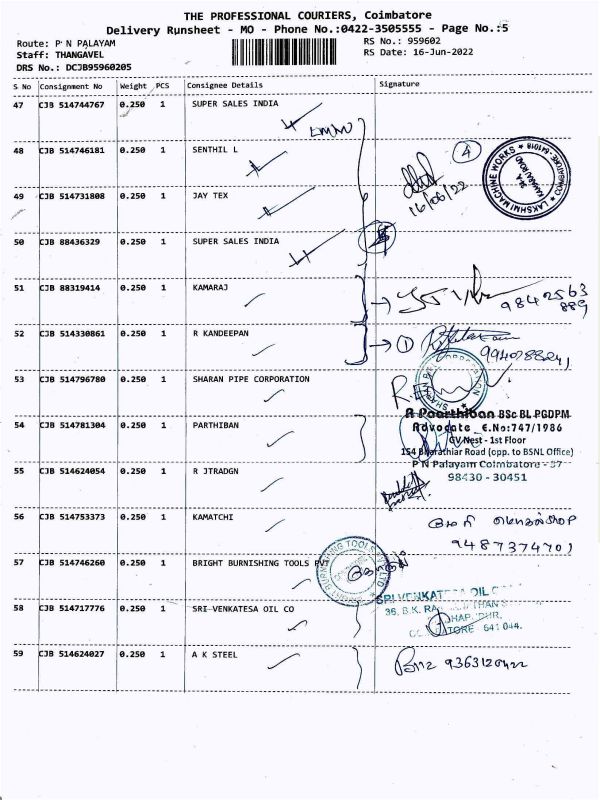 THE PROFESSIONAL COURIERS, Coimbatore
Delivery Runsheet - MO - Phone No.:0422-3505555 - Page No.:5
Route: P N PALAYAM
Staff: THANGAVEL
DRS No.: DCJB95960205
RS No.: 959602
RS Date: 16-Jun-2022
S No Consignment No Weight PCS Consignee Details Signature
47 CJB 514744767 0.250 1 SUPER SALES INDIA
48 CJB 514746181 0.250 1 SENTHIL L
4
16/06/22
LAKSHMI MACHINE WORKS
49 CJB 514731808 0.250 1 JAY TEX
50 CJB 88436329 0.250 1 SUPER SALES INDIA
51 CJB 88319414 0.250 1 KAMARAJ
9842563
889
52 CJB 514330861 0.250 1 R KANDEEPAN
1
53 CJB 514796780 0.250 1 SHARAN PIPE CORPORATION
54 CJB 514781304 0.250 1 PARTHIBAN
A Paarthiban BSc BL PGDPM
Advocate E.No:747/1986
GV Nest - 1st Floor
154 Bharathiar Road (opp. to BSNL Office)
P N Palayam Coimbatore - 37
98430 - 30451
55 CJB 514624054 0.250 1 R JTRADGN
56 CJB 514753373 0.250 1 KAMATCHI
9487374701
57 CJB 514746260 0.250 1 BRIGHT BURNISHING TOOLS PVT
58 CJB 514717776 0.250 1 SRI VENKATESA OIL CO
SRI VENKATESA OIL
36, B.K.
641 044.
59 CJB 514624027 0.250 1 A K STEEL
9363120422